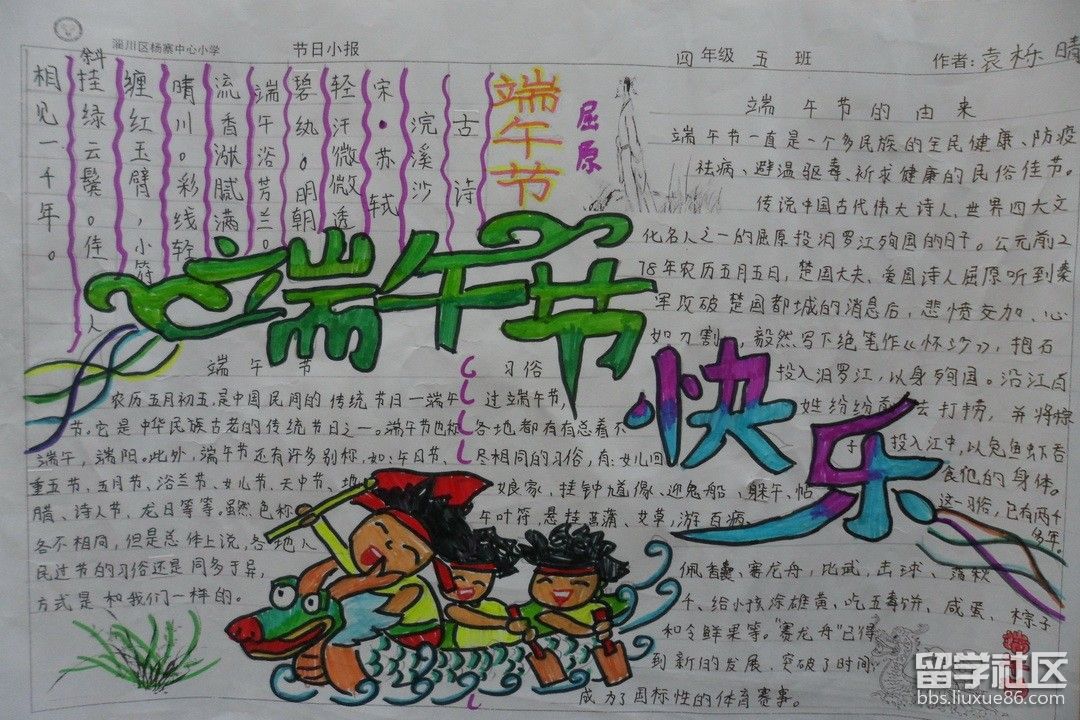 淄川区杨寨中心小学
节日小报
四年级 五 班
作者:袁栎晴
古诗
浣溪沙
宋·苏轼
轻汗微微透
碧纨。明朝
端午浴芳兰。
流香涨腻满
晴川。彩线轻
缠红玉臂,小符
斜挂绿云鬟。佳人
相见一千年。
端午节
屈原
端午节的由来
端午节一直是一个多民族的全民健康、防疫
祛病、避温驱毒、祈求健康的民俗佳节。
传说中国古代伟大诗人、世界四大文
化名人之一的屈原投汨罗江殉国的日子。公元前2
78年农历五月五日,楚国大夫、爱国诗人屈原听到秦
军攻破楚国都城的消息后,悲愤交加、心
如刀割,毅然写下绝笔作《怀沙》,抱石
投入汨罗江,以身殉国。沿江百
姓纷纷 去打捞,并将粽
子 投入江中,以免鱼虾吞
食他的身体。
这一习俗,已有两千
多年。
端午节
快乐
端午节
农历五月初五,是中国民间的传统节日一端午
节。它是中华民族古老的传统节日之一。端午节也称
端午,端阳。此外,端午节还有许多别称,如:午日节、
重五节、五月节、浴兰节、女儿节、天中节、地
腊、诗人节、龙日等等。虽然名称
各不相同,但是总体上说,各地人
民过节的习俗还是同多于异,
方式是和我们一样的。
习俗
过端午节,
各地都有有总着不
尽相同的习俗,有:女儿回
娘家,挂钟馗像、迎鬼船、躲午,帖
午叶符,悬挂菖蒲、艾草,游百病,
佩香囊、赛龙舟,比武,击球、荡秋
千、给小孩涂雄黄、吃五毒饼、咸蛋、粽子
和令鲜果等。"赛龙舟"已得
到新的发展,突破了时间
成为了国标性的体育赛事。
留学社区
bbs.liuxue86.com